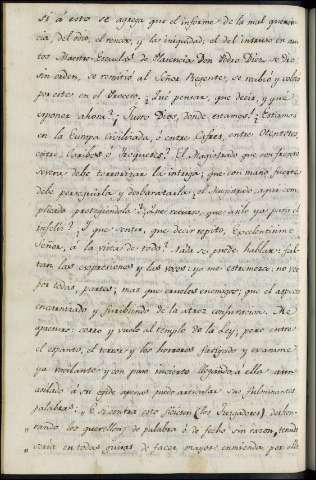 Si á esto se agrega que el informe de la mal queren-
cia, del odio, el rencor, y la iniquidad, el del intruso en au-
tos Maestre Escuelas de Plasencia Don Pedro Diez se dio
sin orden, se remitió al Señor Regente, se recibió y colocó
por estos en el Proceso. ¿Que pensar, que decir, y que
esponer ahora? ¡Justo Dios, donde estamos! ¿Estamos
en la Europa Civilizada, ó entre Cafres, entre Otentotes,
entre Caribes ó Iroqueses? El Magistrado que con frente
serena debe terrorizar la intriga; que con mano fuerte
debe perseguirla y desbaratarla; ¿el Magistrado aqui com-
plicado protegiendola? ¿Que recurso, que asilo ya para el
infeliz? ¿Y que sentir, que decir repito, Excelentisimo
Señor, á la vista de todo? Nada se puede hablar: fal-
tan las expresiones y las voces: yo me estremezco: no veo
por todas partes, mas que crueles enemigos; que el aspecto
encarnizado y furibundo de la atroz conjuracion. Me
apresuro: corro y vuelo al templo de la Ley; pero entre
el espanto, el terror y los horrores fatigado y exanime
ya vacilante y con paso incierto llegando á ella asi-
milado á su egide apenas puedo articular sus fulminantes
palabras: „ E si contra esto ficiesen (los Juzgadores) deshon-
„ rando los querellosos de palabra ó de fecho sin razon, tenudos
„ serian en todas guisas de facer mayor enmienda por ello